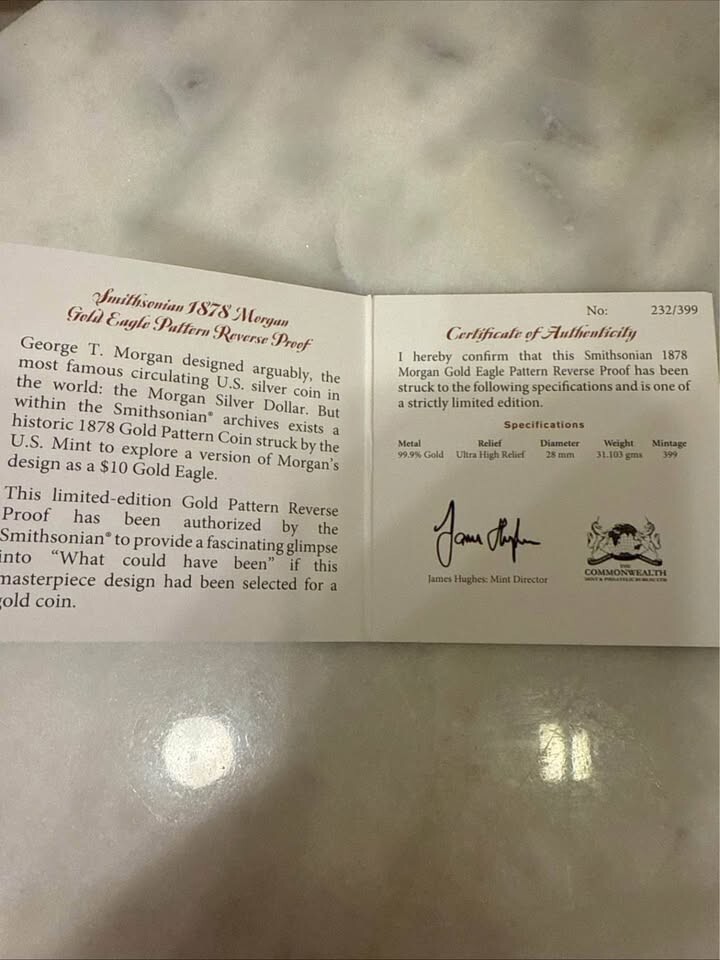 Smithsonian 1878 Morgan
Gold Eagle Pattern Reverse Proof
George T. Morgan designed arguably, the
most famous circulating U.S. silver coin in
the world: the Morgan Silver Dollar. But
within the Smithsonian® archives exists a
historic 1878 Gold Pattern Coin struck by the
U.S. Mint to explore a version of Morgan's
design as a $10 Gold Eagle.
This limited-edition Gold Pattern Reverse
Proof has been authorized by the
Smithsonian® to provide a fascinating glimpse
into "What could have been" if this
masterpiece design had been selected for a
gold coin.
No: 232/399
Certificate of Authenticity
I hereby confirm that this Smithsonian 1878
Morgan Gold Eagle Pattern Reverse Proof has been
struck to the following specifications and is one of
a strictly limited edition.
Specifications
Metal Relief Diameter Weight Mintage
99.9% Gold Ultra High Relief 28 mm 31.103 gms 399
James Hughes
James Hughes: Mint Director
THE
COMMONWEALTH
MINT & PHILATELIC BUREAU LTD